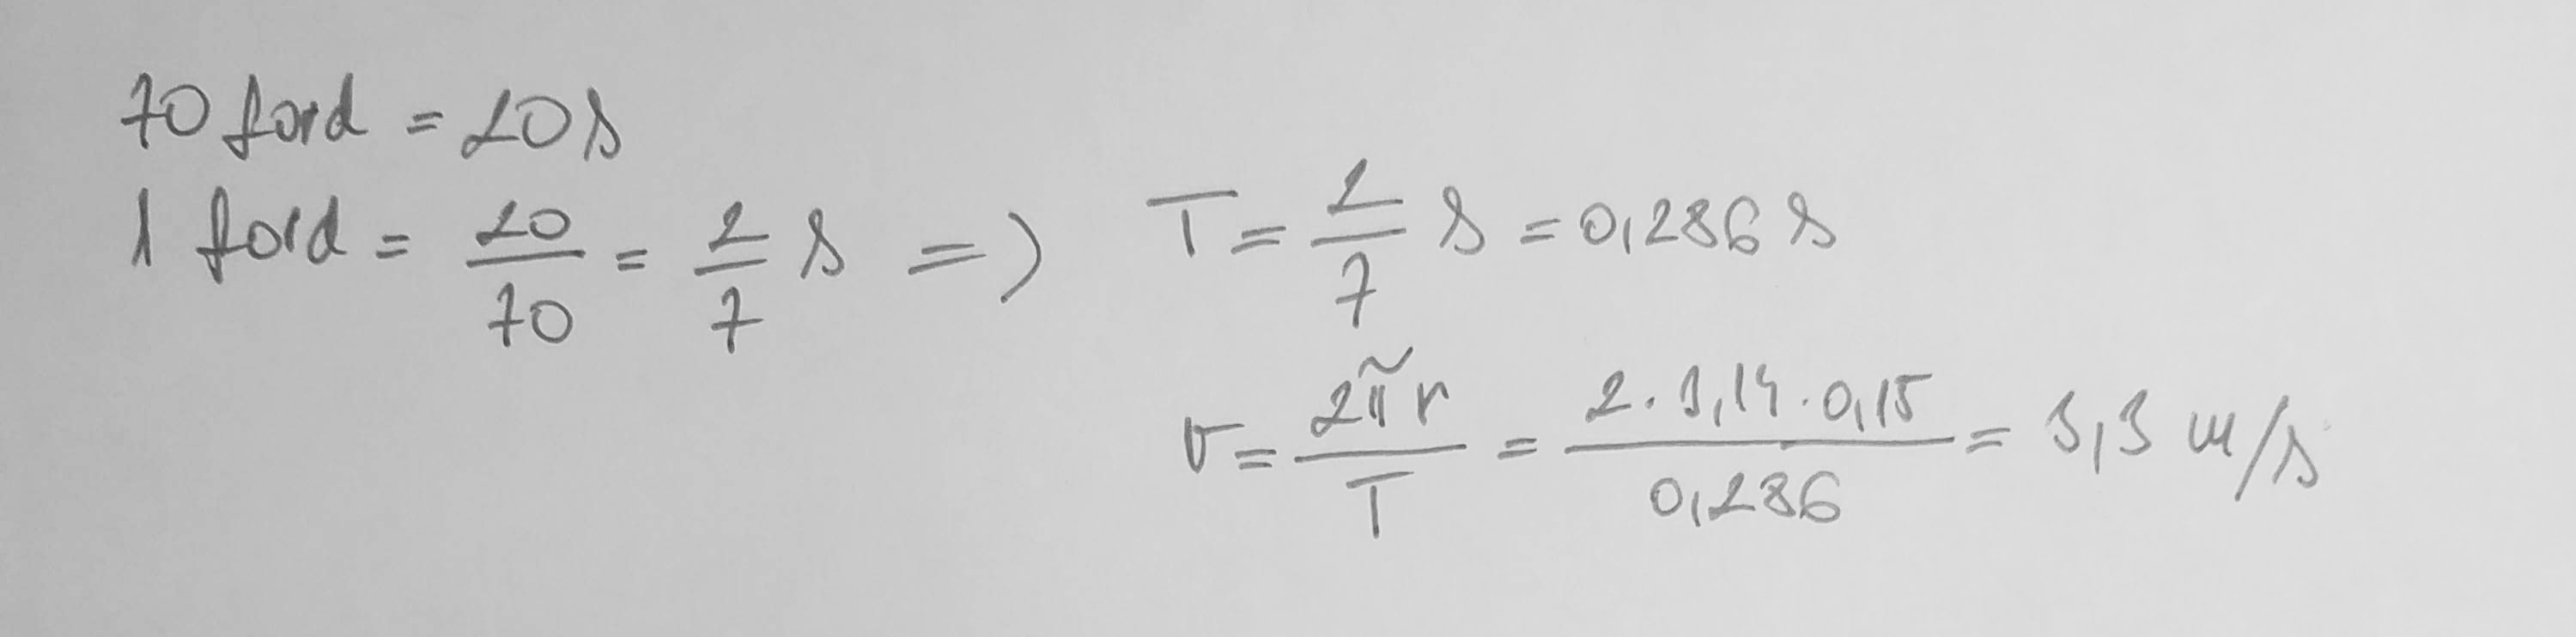 70 ford = 20 s
1 ford = 20/70 = 2/7 s => T = 2/7 s = 0,286 s
v = 2πr/T = 2·3,14·0,15/0,286 = 3,3 m/s